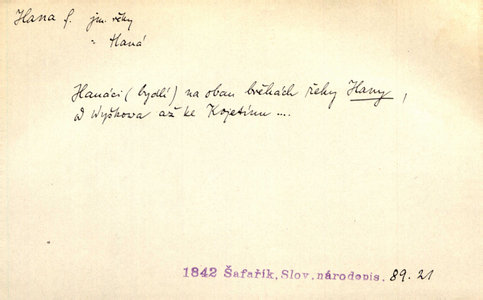 Hana f. jm. řéky
= Haná
Hanáci (bydlí) na obau břěhách řeky Hany,
od Wyškowa až ke Kojetínu ....
1842 Šafařík, Slov. národopis. 89. 21